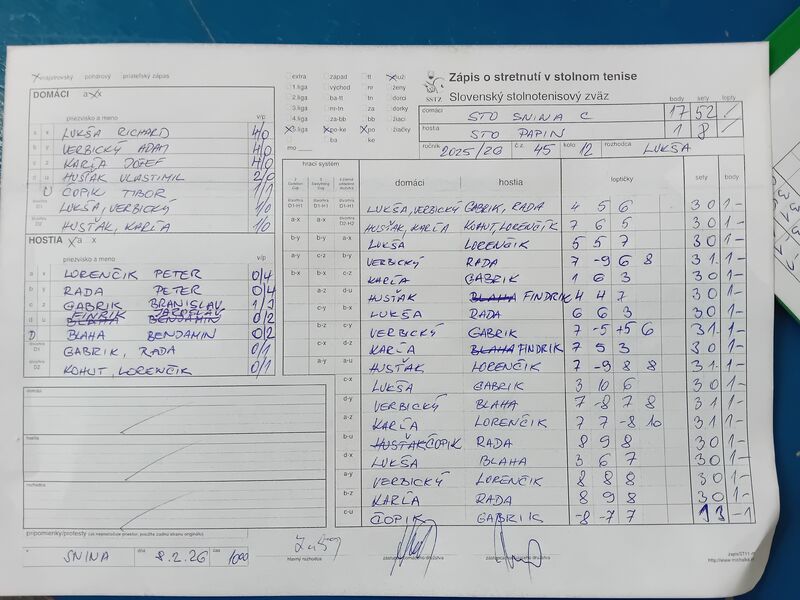 majstrovský pohárový priateľský zápas
extra západ tt muži
1.liga východ nr-tn ženy
2.liga ba-tt tn dorci
3.liga nr-tn za dorky
4.liga za-bb bb žiaci
5.liga po-ke po žiačky
ba ke
Zápis o stretnutí v stolnom tenise
SSTZ Slovenský stolnotenisový zväz
body sety lopty
domáci STO SNINA C 17 52 /
hostia STO PAPIN 1 8 /
ročník 2025/26 č.z. 45 kolo 12 rozhodca LUKŠA
DOMÁCI a x x
priezvisko a meno v/p
a x LUKŠA RICHARD 4/0
b y VERBICKÝ ADAM 4/0
c z KARĽA JOZEF 4/0
d u HUSŤAK VLASTIMIL 2/0
U ČOPIK TIBOR 1/1
štvorhra D1 LUKŠA, VERBICKÝ 1/0
štvorhra D2 HUSŤAK, KARĽA 1/0
HOSTIA x a x
priezvisko a meno v/p
a x LORENČIK PETER 0/4
b y RADA PETER 0/4
c z GABRIK BRANISLAV 1/3
d u FINRIK JAROSLAV 0/2
BLAHA BENJAMIN
D BLAHA BENJAMIN 0/2
štvorhra D1 GABRIK, RADA 0/1
štvorhra D2 KOHUT, LORENČIK 0/1
hrací systém domáci hostia loptičky sety body
LUKŠA, VERBICKÝ GABRIK, RADA 4 5 6 3 0 1 -
HUSŤAK, KARĽA KOHUT, LORENČIK 7 6 5 3 0 1 -
LUKŠA LORENČIK 5 5 7 3 0 1 -
VERBICKÝ RADA 7 -9 6 8 3 1 1 -
KARĽA GABRIK 1 6 3 3 0 1 -
HUSŤAK BLAHA FINDRIK 4 4 7 3 0 1 -
LUKŠA RADA 6 6 3 3 0 1 -
VERBICKÝ GABRIK 7 -5 +5 6 3 1 1 -
KARĽA BLAHA FINDRIK 7 5 3 3 0 1 -
HUSŤAK LORENČIK 7 -9 8 8 3 1 1 -
LUKŠA GABRIK 3 10 6 3 0 1 -
VERBICKÝ BLAHA 7 -8 7 8 3 1 1 -
KARĽA LORENČIK 7 7 -8 10 3 1 1 -
HUSŤAK ČOPIK RADA 8 9 8 3 0 1 -
LUKŠA BLAHA 3 6 7 3 0 1 -
VERBICKÝ LORENČIK 8 8 8 3 0 1 -
KARĽA RADA 8 9 8 3 0 1 -
c-u ČOPIK GABRIK -8 -7 7 1 3 - 1
domáci
hostia
rozhodca
pripomienky/protesty (ak nepostačuje priestor, použite zadnú stranu originálu)
v SNINA dňa 8.2.26 čas 1000
hlavný rozhodca